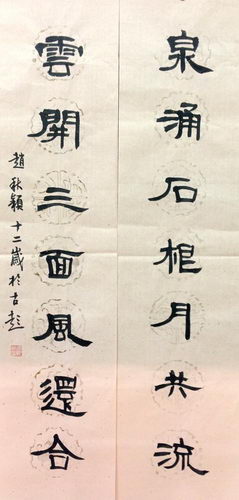 泉涌石根月共流
雲開三面風還合
趙秋穎十二歲於古彭